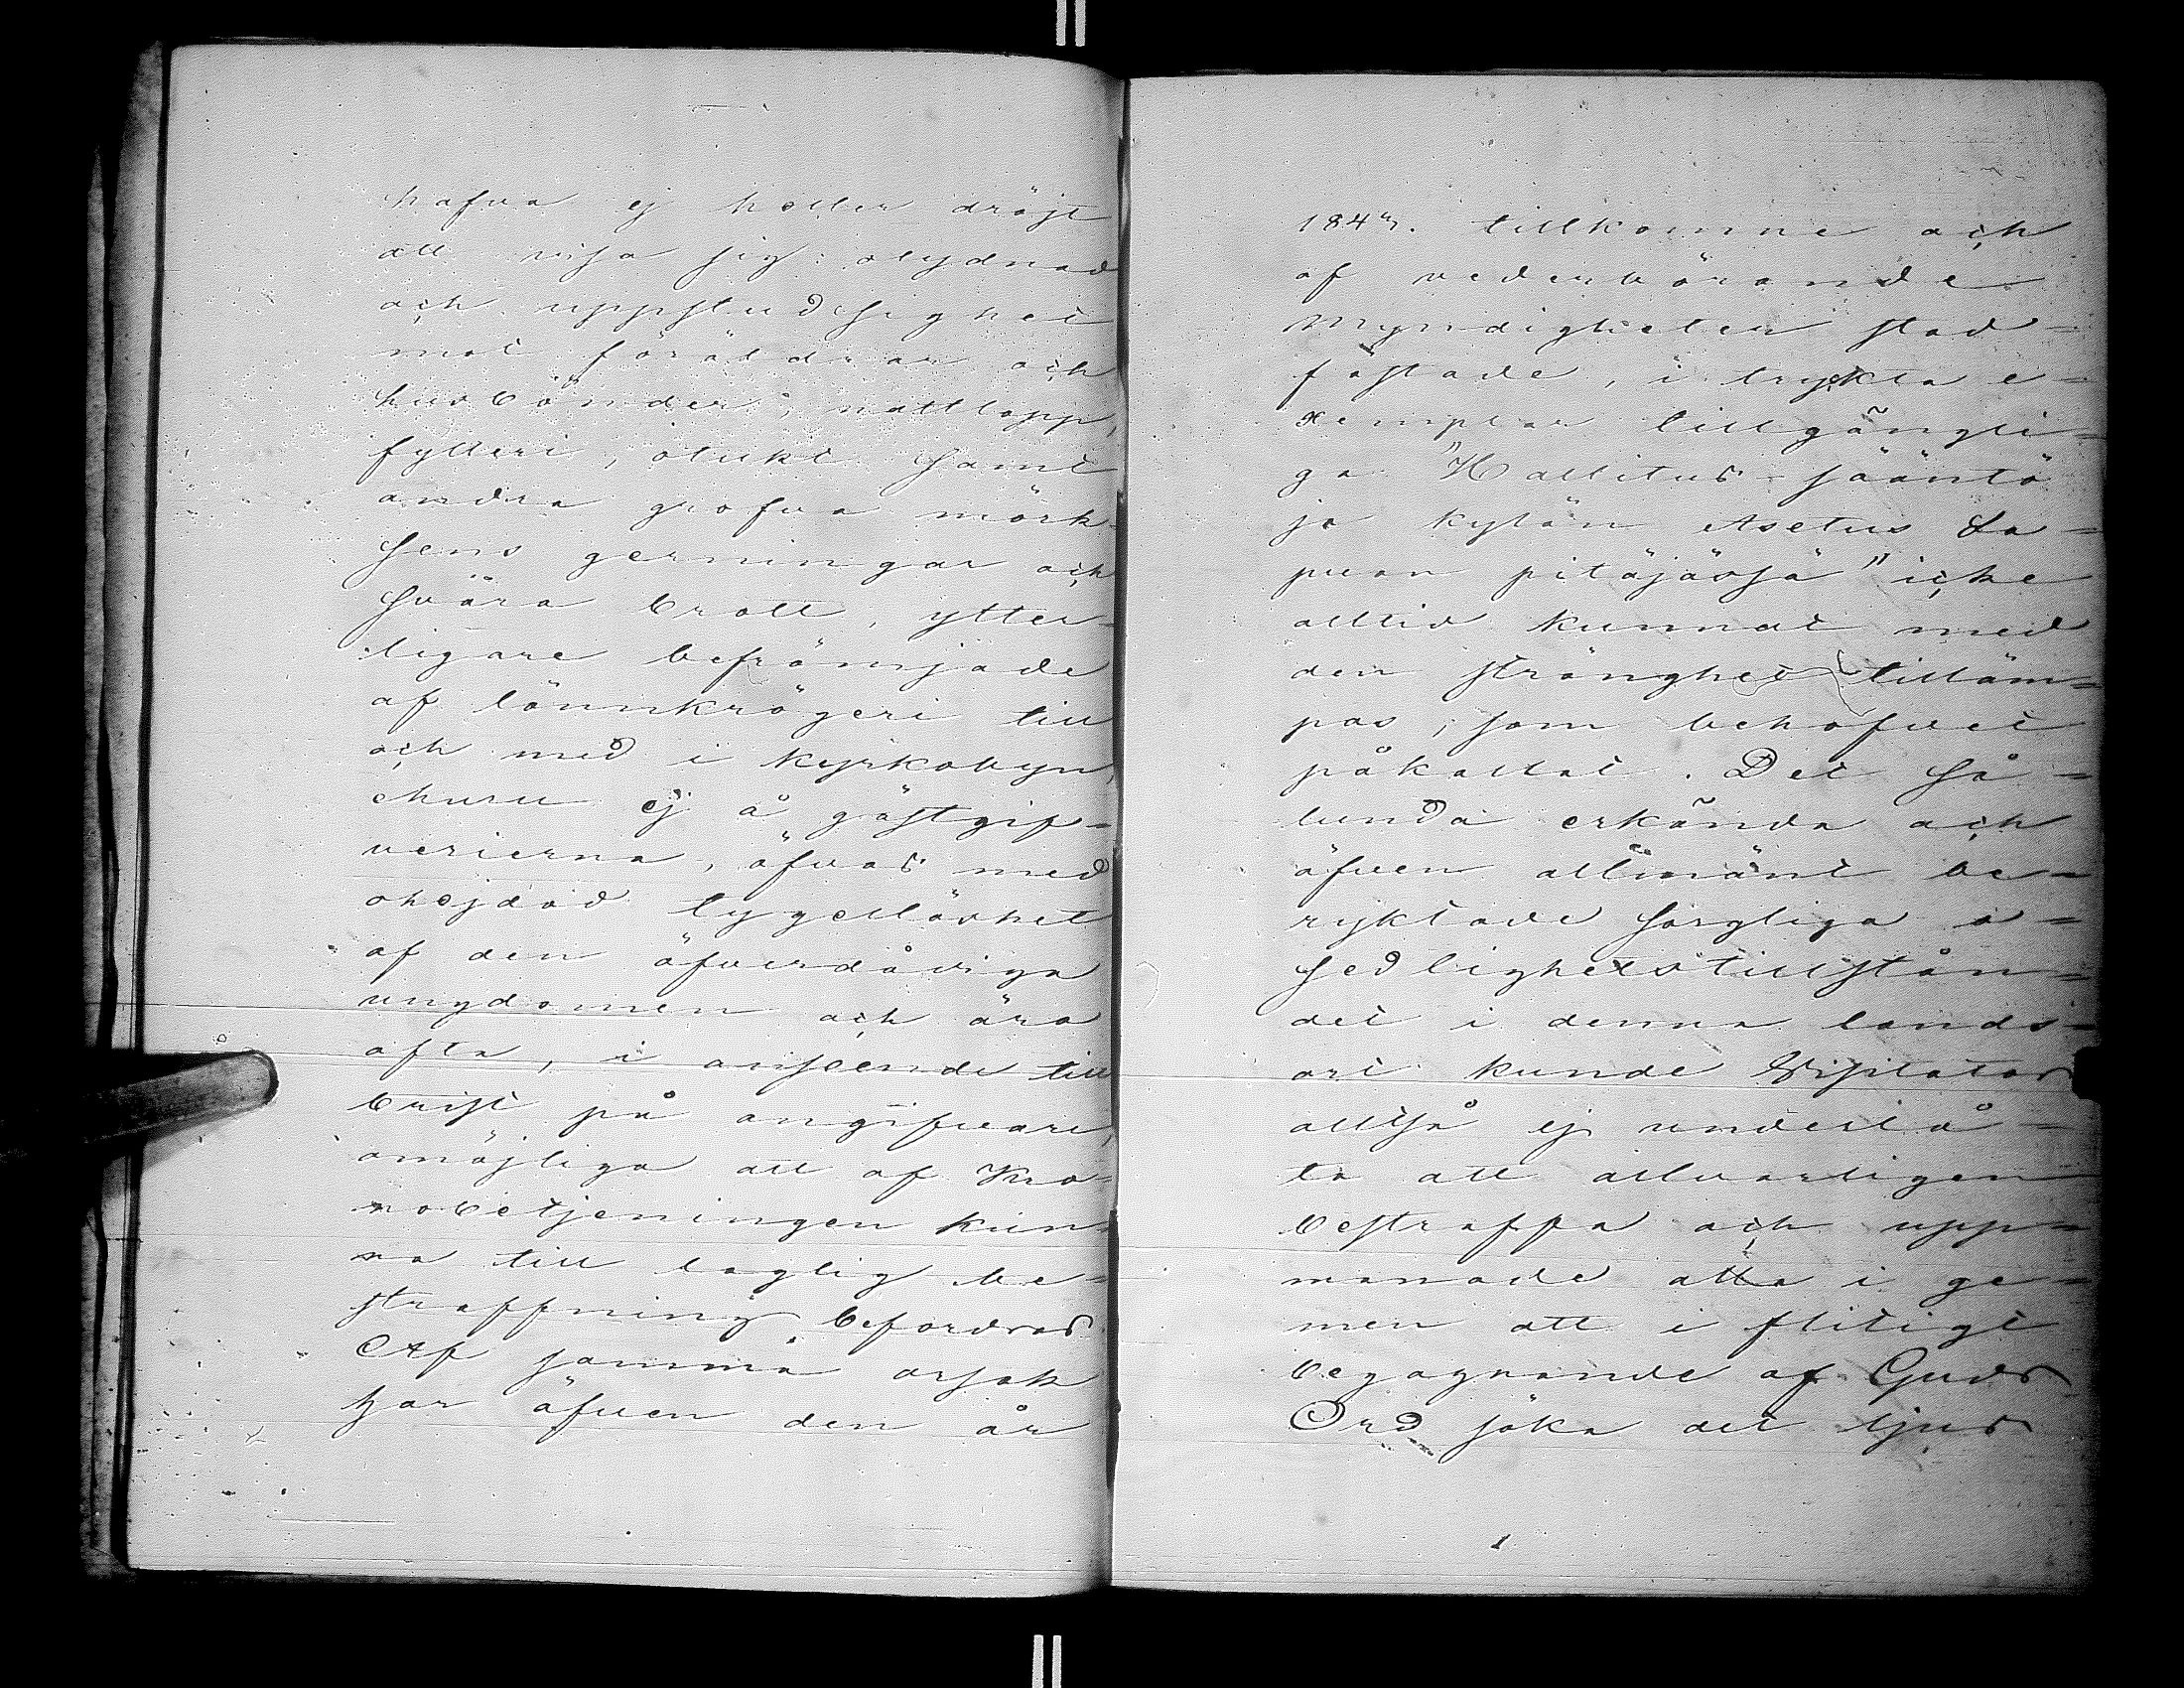 hafva ej heller dröjt
att visa sig: olydnad
och uppstudsighet
mot föräldrar och
husbönder, nattlopp,
fylleri, otukt samt
andra grofva mörk-
sens gerningar och
svåra brott, ytter-
ligare befrämjade
af lönnkrögeri till
och med i kyrkobyn,
ehuru ej å gästgif-
verierna, öfvas med
ohejdad tygellöshet
af den öfverdådiga
ungdomen och äro
ofta, i anseende till
brist på angifvare,
omöjliga att af Kro-
nobetjeningen kun-
na till laglig be-
straffning befordras.
Af samma orsak
har äfven den år
184 . tillkomne och
af vederbörande
Myndigheter stad-
fästade, i tryckta e-
xemplar tillgängli-
ga "Hallitus-sääntö
ja kylän Asetus La-
puan pitäjässä" icke
alltid kunnat med
den stränghet tilläm-
pas, som behofvet
påkallat. Det så-
lunda erkända och
äfven allmänt be-
ryktade sorgliga o-
sedlighetstillstån-
det i denna lands-
ort kunde Visitator
alltså ej underlå-
ta att allvarligen
bestraffa och upp-
manade alla i ge-
men att i flitigt
begagnande af Guds
Ord söka det ljus
1